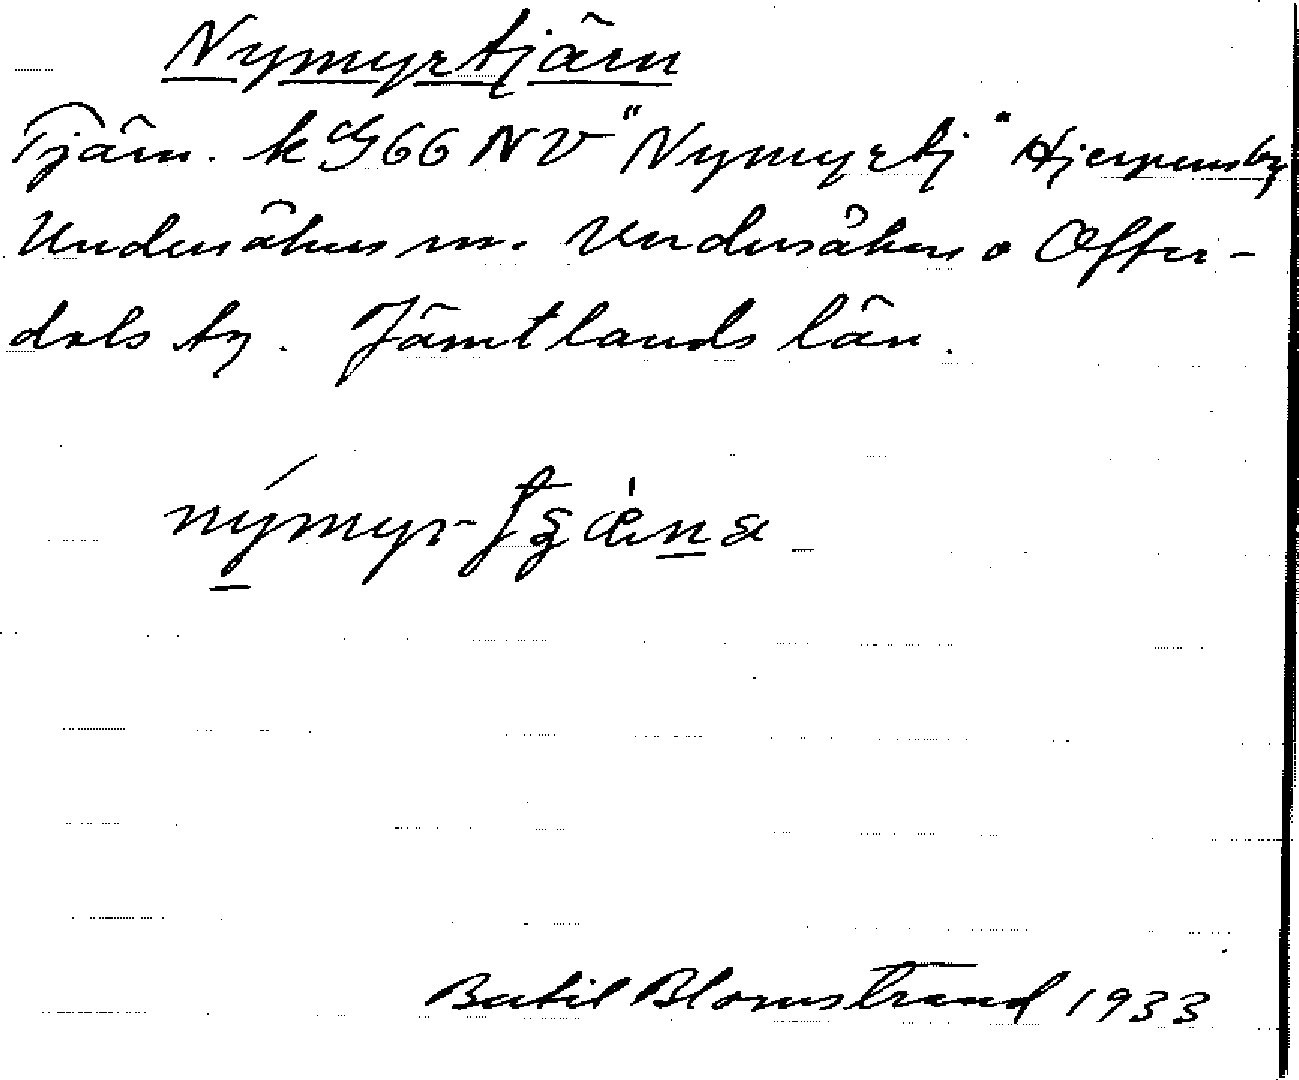 Nymyrtjärn
Tjärn. k G66 NV "Nymyrtj" Hjerpensby
Undersåkers sn. Undersåkers o Offer-
dals tg. Jämtlands län.
nymyr-
Bertil Blomstrand 1933